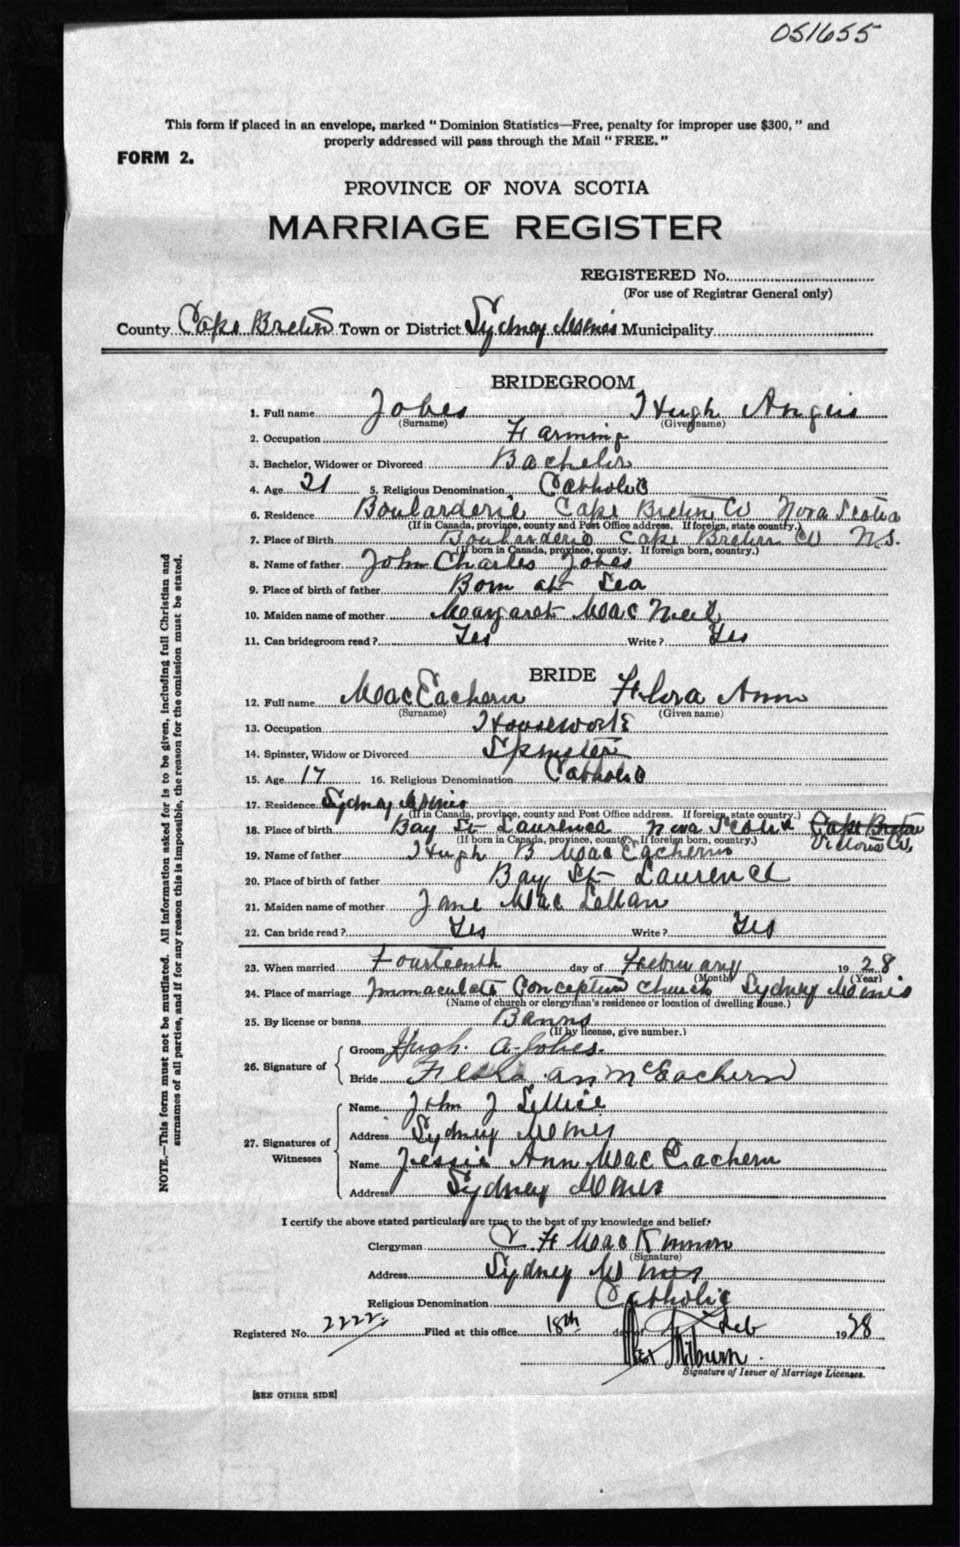 051655
This form if placed in an envelope, marked "Dominion Statistics—Free, penalty for improper use $300," and
properly addressed will pass through the Mail "FREE."
FORM 2.
PROVINCE OF NOVA SCOTIA
MARRIAGE REGISTER
REGISTERED No.
(For use of Registrar General only)
County Cape Breton Town or District Sydney Mines Municipality
BRIDEGROOM
1. Full name Jobes Hugh Angus
(Surname) (Given name)
2. Occupation Farming
3. Bachelor, Widower or Divorced Bachelor
4. Age 21 5. Religious Denomination Catholic
6. Residence Boularderie Cape Breton Co Nova Scotia
(If in Canada, province, county and Post Office address. If foreign, state country.)
7. Place of Birth Boularderie Cape Breton Co N.S.
(If born in Canada, province, county. If foreign born, country.)
8. Name of father John Charles Jobes
9. Place of birth of father Born at Sea
10. Maiden name of mother Margaret MacNeil
11. Can bridegroom read? Yes Write? Yes
BRIDE
12. Full name MacEachern Flora Ann
(Surname) (Given name)
13. Occupation Housework
14. Spinster, Widow or Divorced Spinster
15. Age 17 16. Religious Denomination Catholic
17. Residence Sydney Mines
(If in Canada, province, county and Post Office address. If foreign, state country.)
18. Place of birth Bay St Laurence Nova Scotia Cape Breton
(If born in Canada, province, county. If foreign born, country.) Victoria Co,
19. Name of father Hugh B MacEachern
20. Place of birth of father Bay St Laurence
21. Maiden name of mother Jane Mac Lellan
22. Can bride read? Yes Write? Yes
23. When married Fourteenth day of February 1928
(Month) (Year)
24. Place of marriage Immaculate Conception Church Sydney Mines
(Name of church or clergyman's residence or location of dwelling house.)
25. By license or banns Banns
(If by license, give number.)
26. Signature of Groom Hugh. A. Jobes.
Bride Flora ann McEachern
27. Signatures of Witnesses
Name John J
Address Sydney Mines
Name Jessie Ann MacEachern
Address Sydney Mines
I certify the above stated particulars are true to the best of my knowledge and belief.
Clergyman C. F MacKinnon
(Signature)
Address Sydney Mines
Religious Denomination Catholic
Registered No. 2222 Filed at this office 18th day of Feb 1928
Alex Milburn.
Signature of Issuer of Marriage Licenses.
[SEE OTHER SIDE]
NOTE.—This form must not be mutilated. All information asked for is to be given, including full Christian and
surnames of all parties, and if for any reason this is impossible, the reason for the omission must be stated.